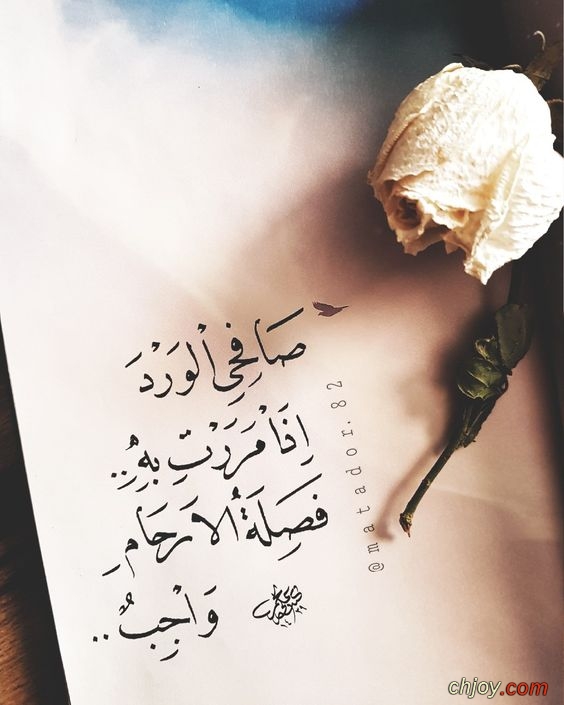 صَافِحِي الْوَرْدَ
اِذَا مَرَرْتِ بِهِ..
فَصِلَةُ الارحَامِ
وَاْجِبٌ..
@matador.82
chjoy.com